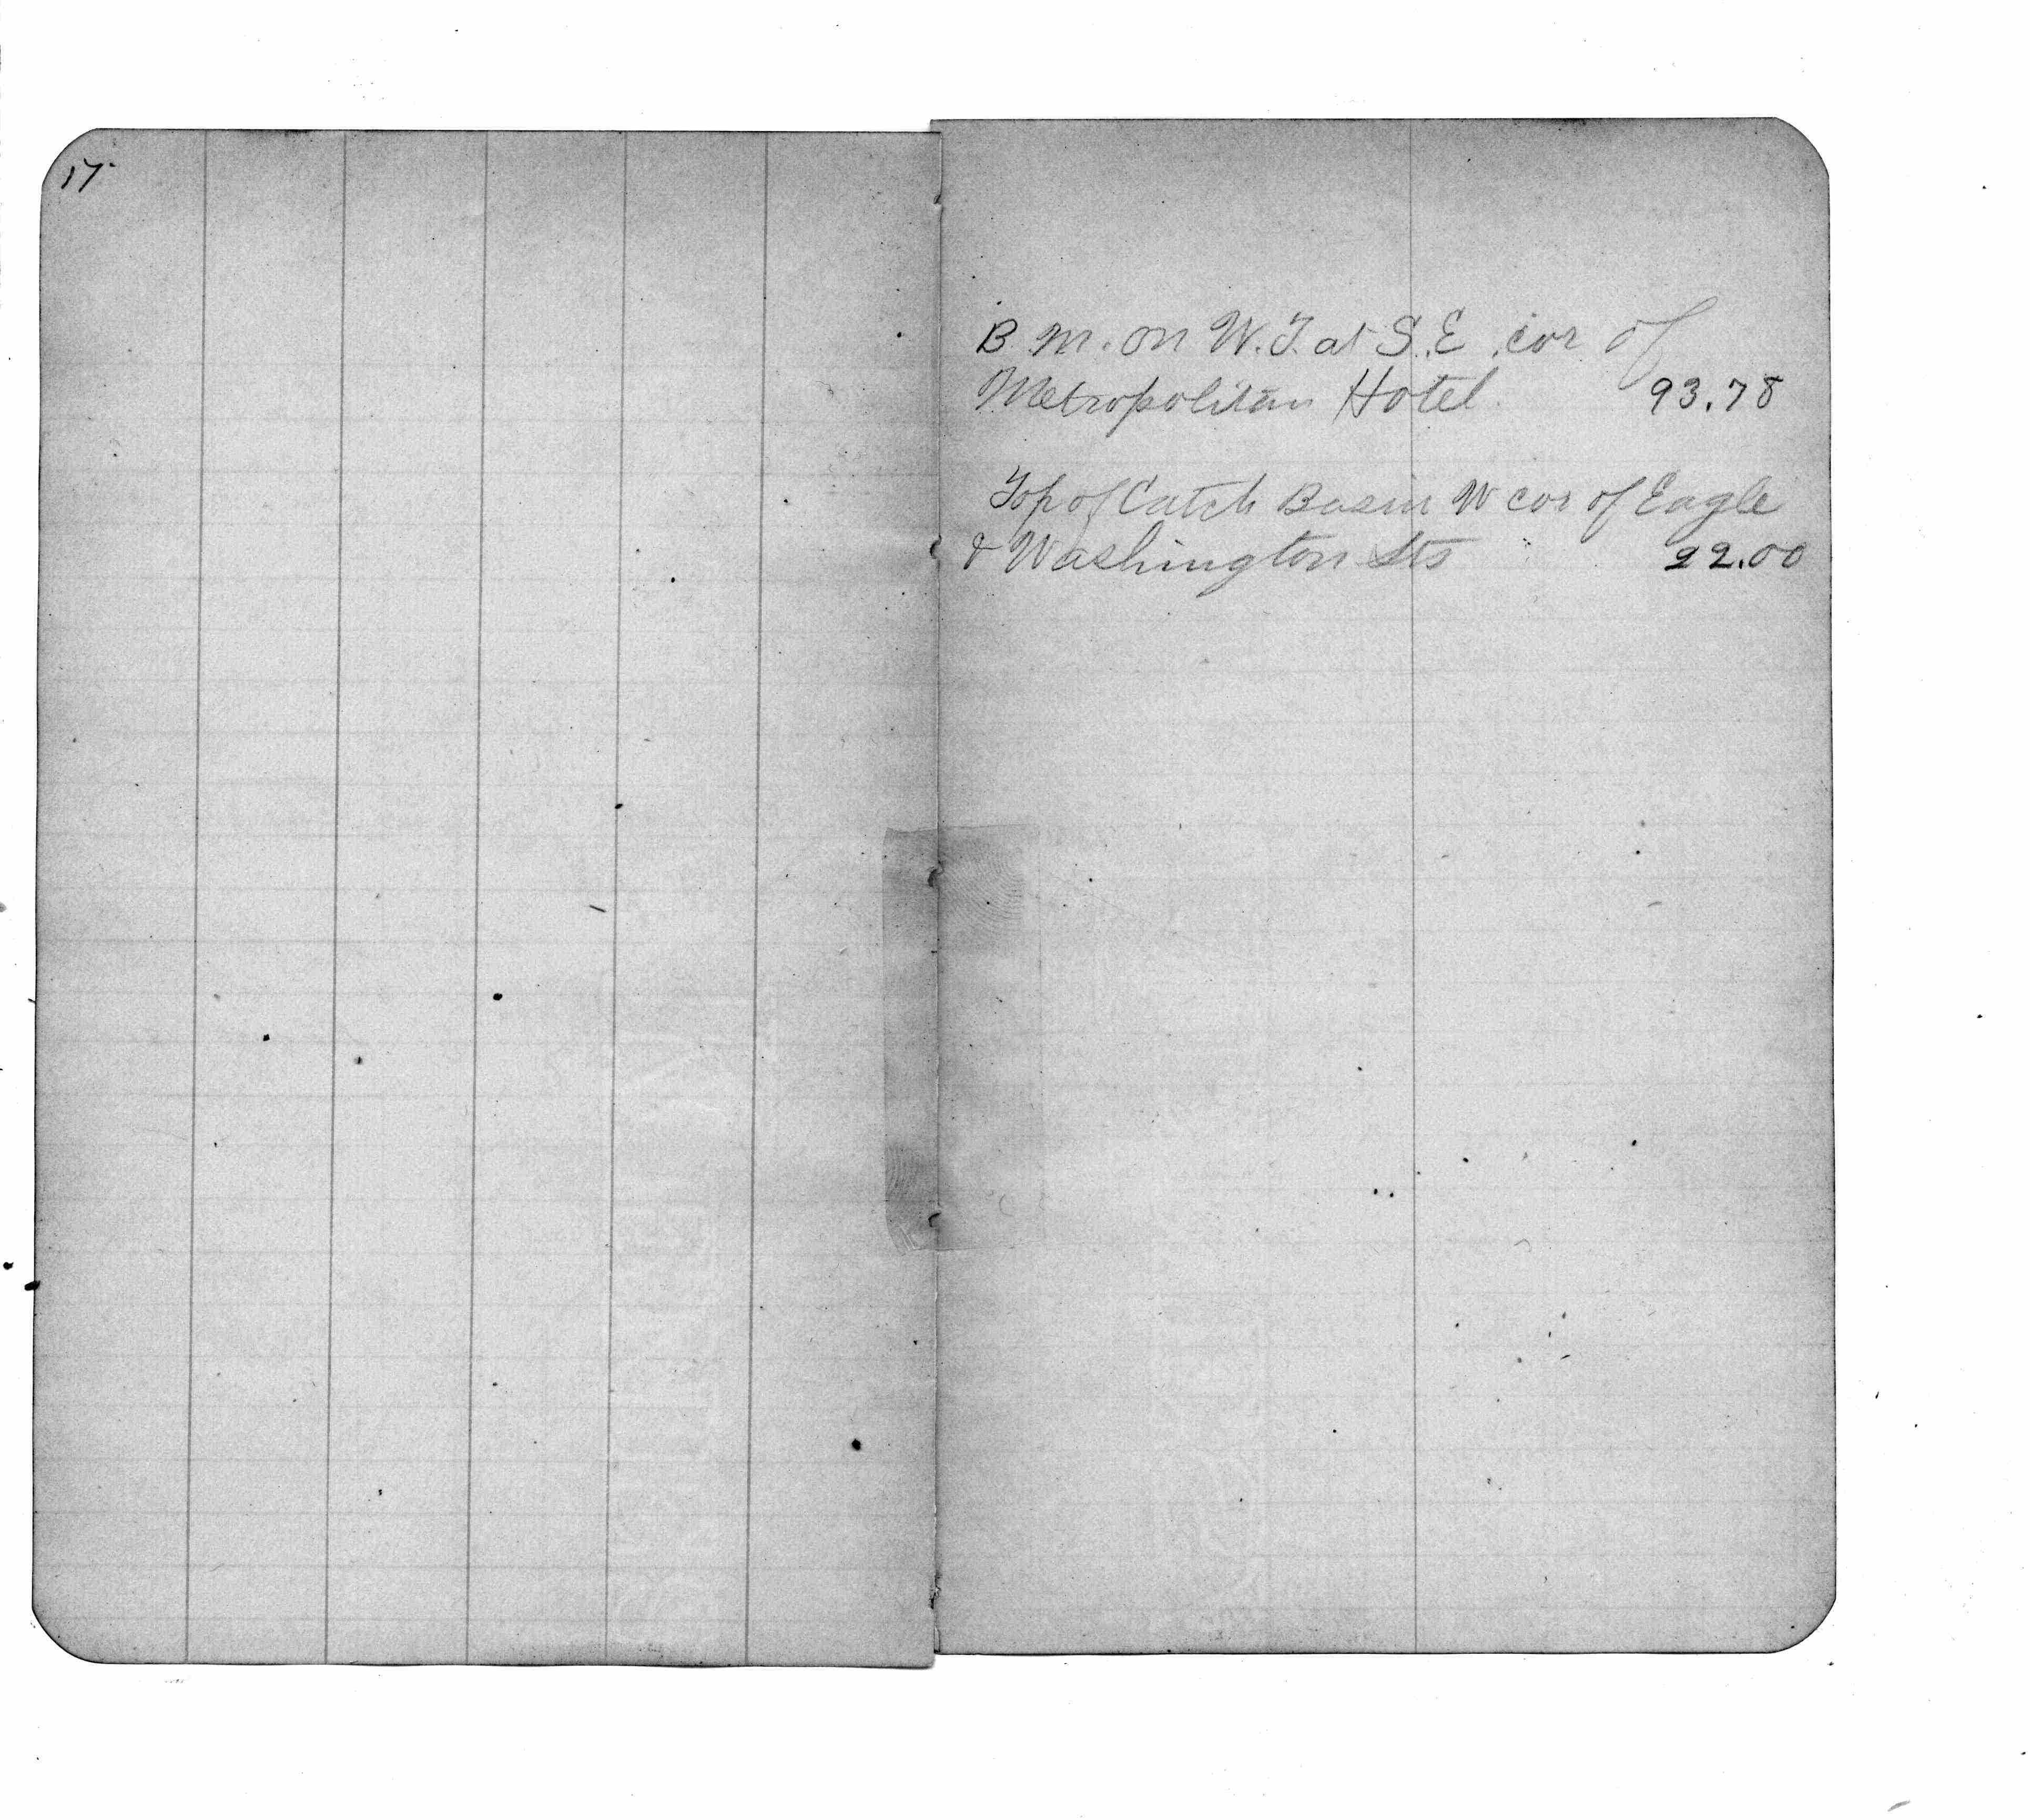 17
B.M. on W.T. at S.E. cor of
Metropolitan Hotel. 93.78
Top of Catch Basin W cor of Eagle
& Washington Sts 22.00